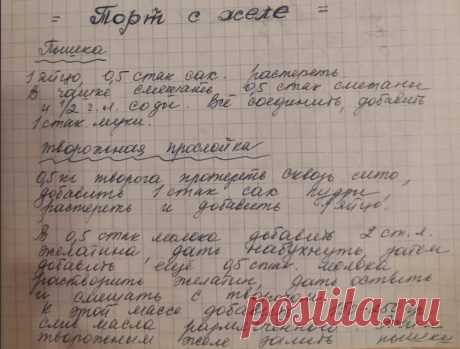 = Торт с желе =
Пышка
1 яйцо, 0,5 стак сах. растереть
В чашке смешать 0,5 стак сметаны
и 1/2 ч.л. соды. Всё соединить, добавить
1 стак муки.
творожная прослойка
0,5 кг творога протереть сквозь сито,
добавить 1 стак сах пудры,
растереть и добавить 1 яйцо.
В 0,5 стак молока добавить 2 ст.л.
желатина дать набухнуть, затем
добавить ещё 0,5 стак. молока
растворить желатин, дать остыть
и смешать с творогом
К этой массе добавить
слив масла размягченного
творожным желе залить пышки
postila.ru